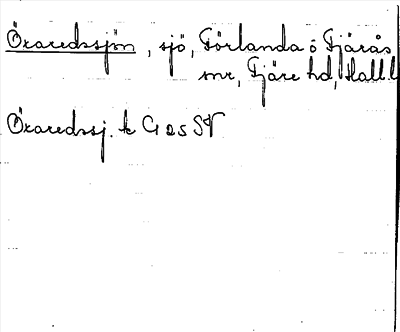 Öxaredssjön, sjö, Förlanda o Fjärås
snr, Fjäre hd, Hall l
Öxaredssj. tc G 25 SV